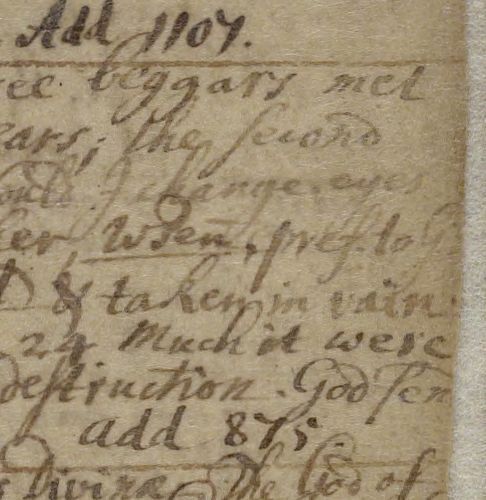 Add 1107.
ee beggars met
ears; the second
I change eyes
ker, Wren, pref. to
& taken in vain.
24 Much it were
destruction. God sen
add 875
Divina The God of